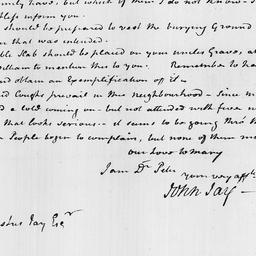 have, but which of them I do not know-
inform you.
should be prepared to vest the burying Ground
that was intended.
Slab should be placed on your uncles Graves, a
to mention this to you. Remember to ha
and obtain an Exemplification of it-
Coughs prevail in this neighbourhood- Since m
a cold coming on- but not attended with fever n
that looks serious- it seems to be going thro' th
People begin to complain, but none of them m
our Love to Mary
I am Dr. Peter
your very affte.
John Jay-
Jay Esqr